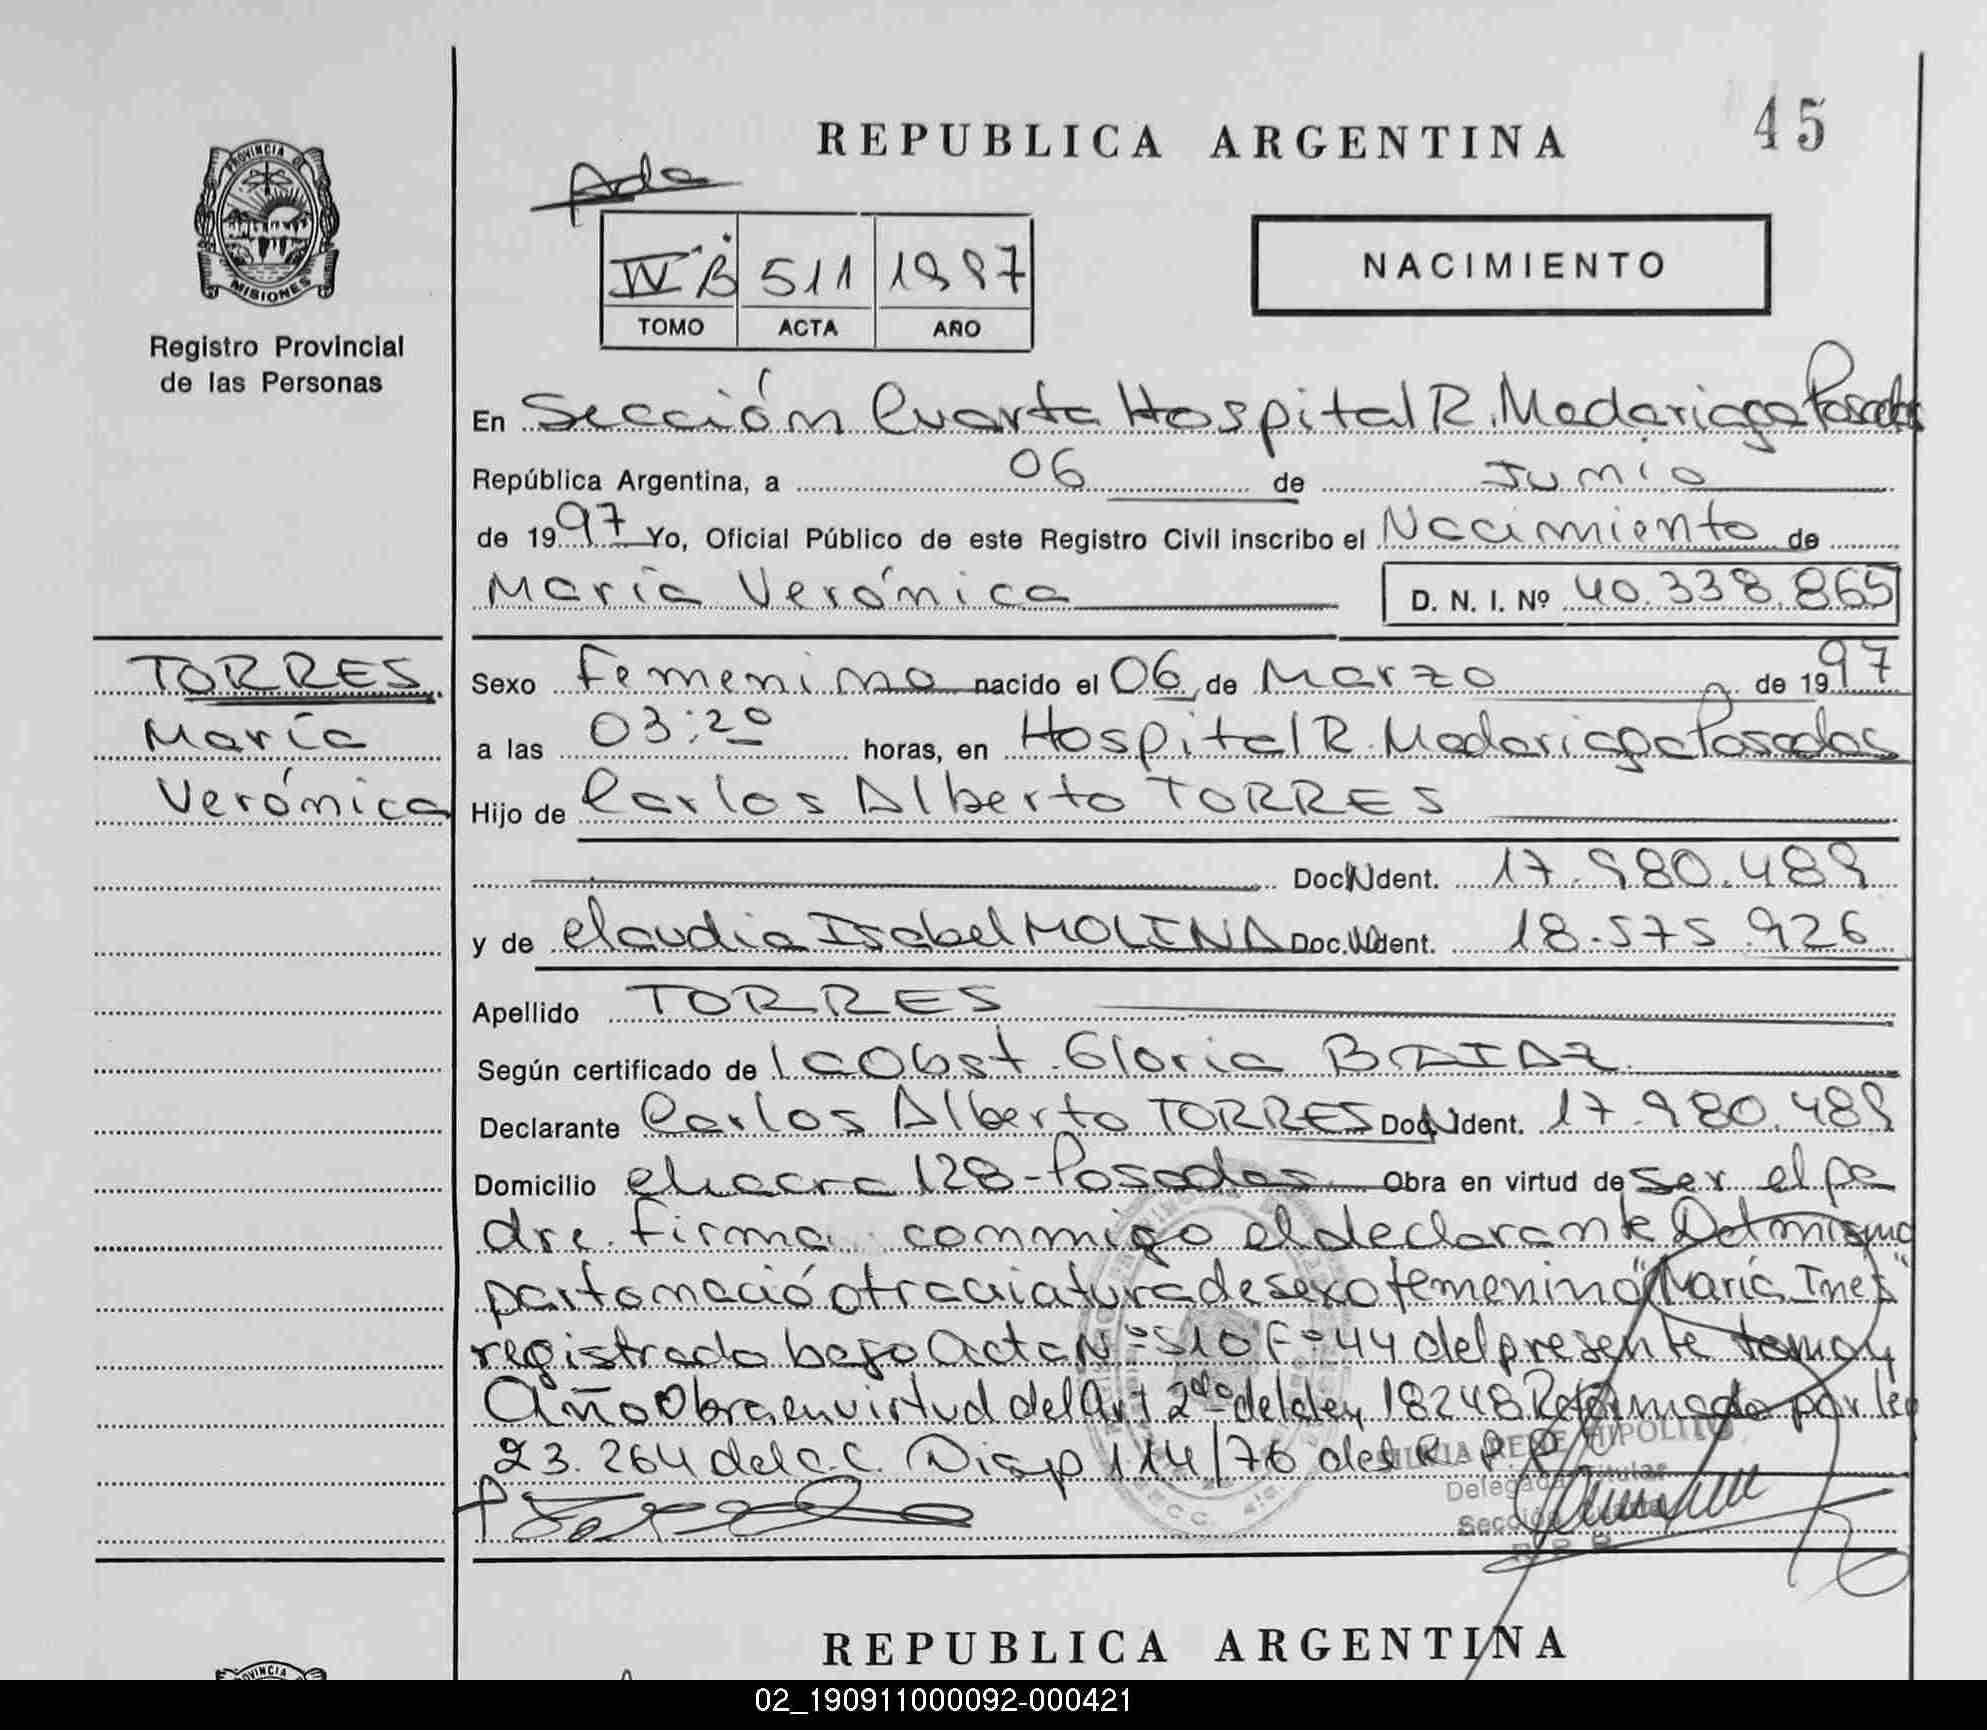 REPUBLICA ARGENTINA
45
PROVINCIA DE
MISIONES
Registro Provincial
de las Personas
Ada
IV B 511 1997
TOMO ACTA AÑO
NACIMIENTO
En Sección Cuarta Hospital R. Madariaga Posadas
República Argentina, a 06 de Junio
de 1997 Yo, Oficial Público de este Registro Civil inscribo el Nacimiento de
María Verónica D. N. I. Nº 40.338.865
TORRES
María
Verónica
Sexo Femenino nacido el 06 de Marzo de 1997
a las 03:20 horas, en Hospital R. Madariaga Posadas
Hijo de Carlos Alberto TORRES
Doc. Ident. 17.980.489
y de Claudia Isabel MOLINA Doc. Ident. 18.575.926
Apellido TORRES
Según certificado de Obst. Gloria
Declarante Carlos Alberto TORRES Doc. Ident. 17.980.489
Domicilio chacra 128-Posadas Obra en virtud de ser el pa
dre. Firma conmigo el declarante Del mismo
parto nació otra criatura de sexo femenino "María Inés"
registrada bajo Acta Nº 510 Fº 44 del presente tomo y
Año Obra en virtud del Art 2do de la ley 18248 Reformada por ley
23.264 del C.C. Disp 114/76 del R.P.P
HIPOLITO
Delegada Titular
Sección
REPUBLICA ARGENTINA
02_190911000092-000421